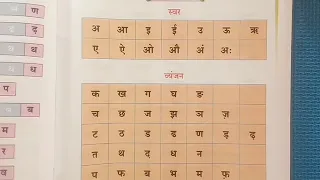 स्वर
अ आ इ ई उ ऊ ऋ
ए ऐ ओ औ अं अः
व्यंजन
क ख ग घ ङ
च छ ज झ ञ ज़
ट ठ ड ढ ण ड़ ढ़
त थ द ध न
प फ ब भ म फ़
ण
ढ़
थ
ध
प
ब
म
र